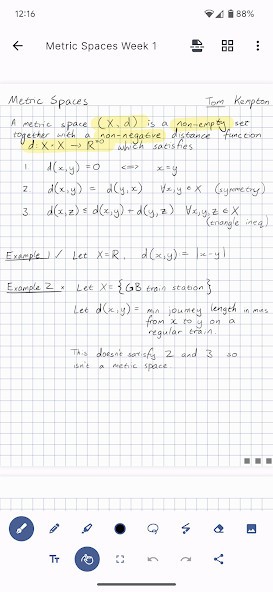 12:16
88%
Metric Spaces Week 1
Metric Spaces
Tom Kempton
A metric space (X, d) is a non-empty set
together with a non-negative distance function
d: X × X → R≥0 which satisfies
1 d(x,y) = 0 <=> x=y
2 d(x,y) = d(y,x) ∀x,y ∈ X (symmetry)
3 d(x,z) ≤ d(x,y) + d(y,z) ∀x,y,z ∈ X
(triangle ineq)
Example 1 / Let X=R, d(x,y) = |x-y|
Example 2 × Let X = {GB train station}
Let d(x,y) = min journey length in mins
from x to y on a
regular train.
This doesnt satisfy 2 and 3 so
isn't a metric space.
TT